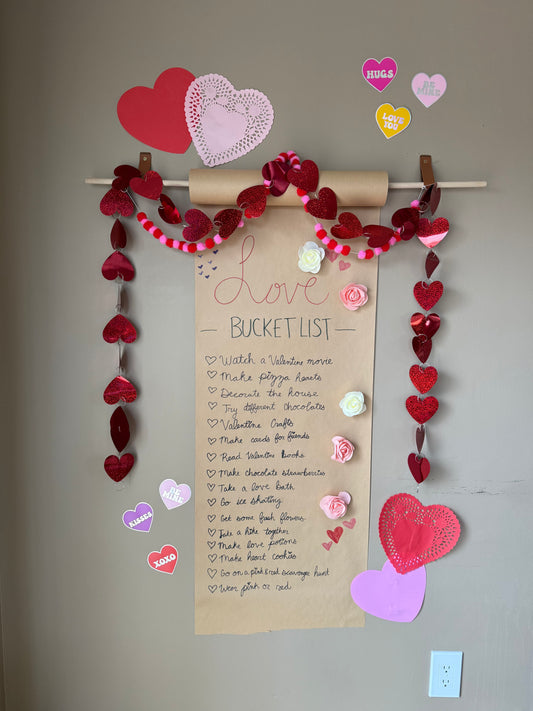 HUGS
BE MINE
LOVE YOU
Love
BUCKET LIST
Watch a Valentine movie
Make pizza hearts
Decorate the house
Try different chocolates
Valentine Crafts
Make cards for friends
Read Valentine books
Make chocolate strawberries
Take a love bath
Go ice skating
Get some fresh flowers
Take a hike together
Make love potions
Make heart cookies
Go on a pink & red scavenger hunt
Wear pink or red
BE MINE
KISSES
XOXO